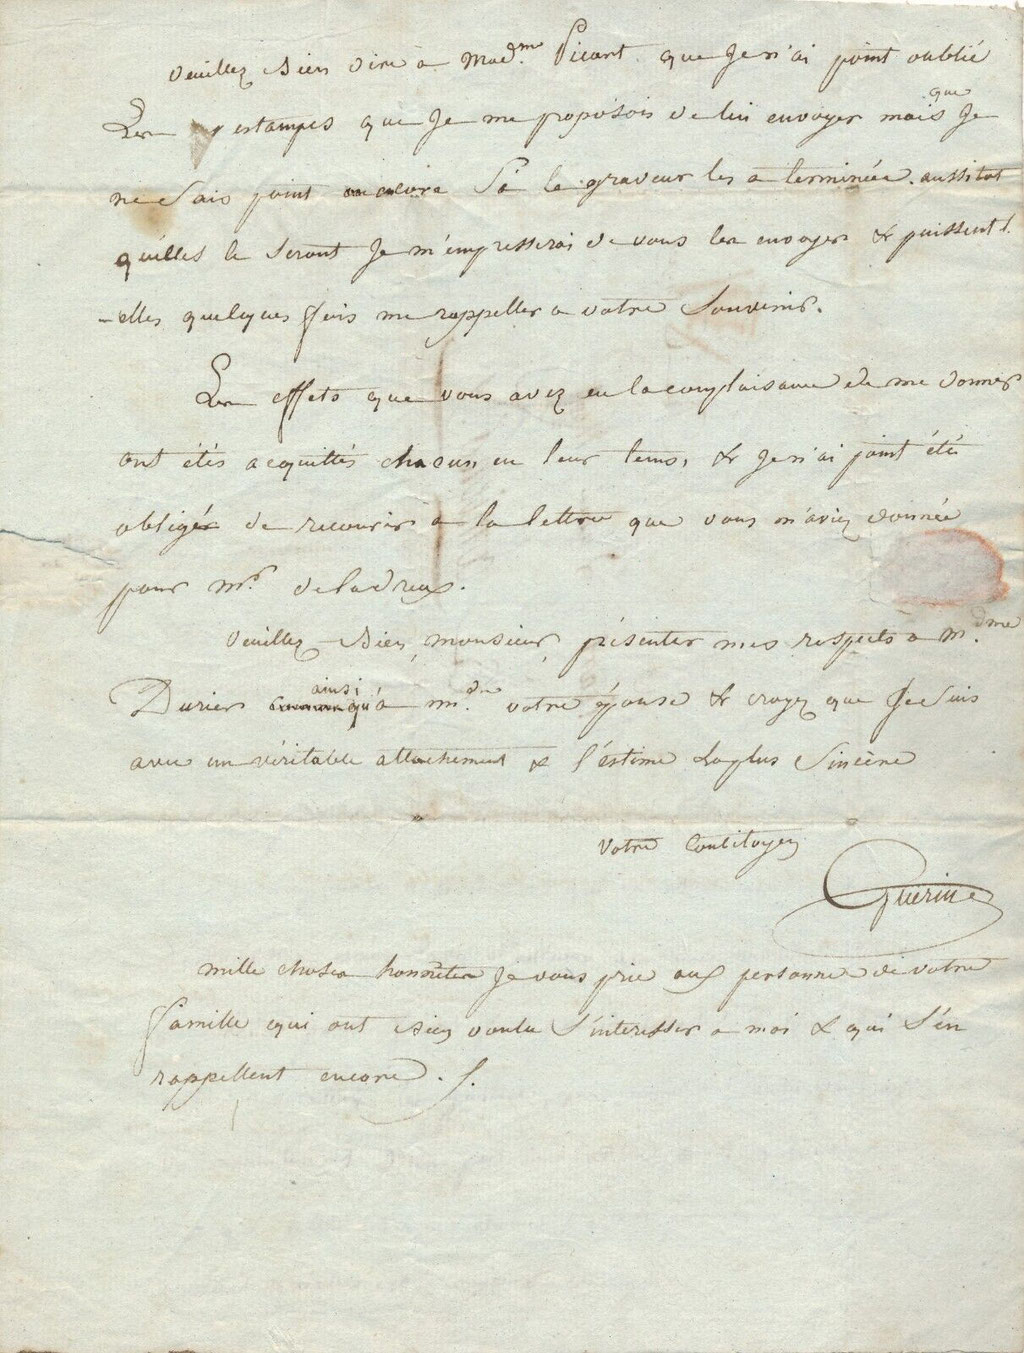 Veuillez bien dire a Mad.me Picart que Je n'ai point oublié
Les estampes que Je me proposois de lui envoyer mais que Je
ne Sais point encore Si le graveur les a terminées. aussitot
qu'elles le Seront Je m'empresserai de vous les envoyer & puissent
-elles quelques fois me rappeller a votre Souvenir.
Les effets que vous avez eu la complaisance de me donner
ont étés acquittés chacun en leur tems, & Je n'ai point été
obligé de recourir a la lettre que vous m'aviez donnée
pour Mr. deladreux.
Veuillez bien, monsieur, présenter mes respects a M.dme
Durier ainsi qu'a M.de votre épouse & croyez que Je Suis
avec un véritable attachement & l'éstime La plus Sincère
Votre Concitoyen
Guerin
mille choses honnêtes Je vous prie aux personnes de votre
famille qui ont bien voulu S'interesser a moi & qui S'en
rappellent encore.